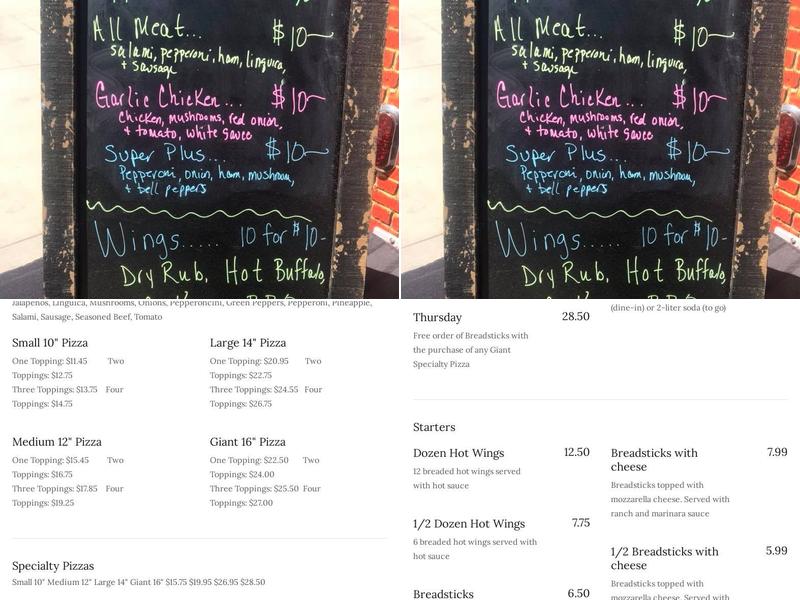 All Meat... $10
salami, pepperoni, ham, linguica,
+ sausage
Garlic Chicken... $10
chicken, mushrooms, red onion,
+ tomato, white sauce
Super Plus.... $10
Pepperoni, onion, ham, mushroom,
+ bell peppers
Wings..... 10 for $10-
Dry Rub, Hot Buffalo,
All Meat... $10
salami, pepperoni, ham, linguica,
+ sausage
Garlic Chicken... $10
chicken, mushrooms, red onion,
+ tomato, white sauce
Super Plus.... $10
Pepperoni, onion, ham, mushroom,
+ bell peppers
Wings..... 10 for $10-
Dry Rub, Hot Buffalo,
Jalapenos, Linguica, Mushrooms, Onions, Pepperoncini, Green Peppers, Pepperoni, Pineapple,
Salami, Sausage, Seasoned Beef, Tomato
Small 10" Pizza
One Topping: $11.45 Two
Toppings: $12.75
Three Toppings: $13.75 Four
Toppings: $14.75
Large 14" Pizza
One Topping: $20.95 Two
Toppings: $22.75
Three Toppings: $24.55 Four
Toppings: $26.75
Medium 12" Pizza
One Topping: $15.45 Two
Toppings: $16.75
Three Toppings: $17.85 Four
Toppings: $19.25
Giant 16" Pizza
One Topping: $22.50 Two
Toppings: $24.00
Three Toppings: $25.50 Four
Toppings: $27.00
Specialty Pizzas
Small 10" Medium 12" Large 14" Giant 16" $15.75 $19.95 $26.95 $28.50
Thursday 28.50
Free order of Breadsticks with
the purchase of any Giant
Specialty Pizza
(dine-in) or 2-liter soda (to go)
Starters
Dozen Hot Wings 12.50
12 breaded hot wings served
with hot sauce
1/2 Dozen Hot Wings 7.75
6 breaded hot wings served with
hot sauce
Breadsticks 6.50
Breadsticks with 7.99
cheese
Breadsticks topped with
mozzarella cheese. Served with
ranch and marinara sauce
1/2 Breadsticks with 5.99
cheese
Breadsticks topped with
mozzarella cheese. Served with